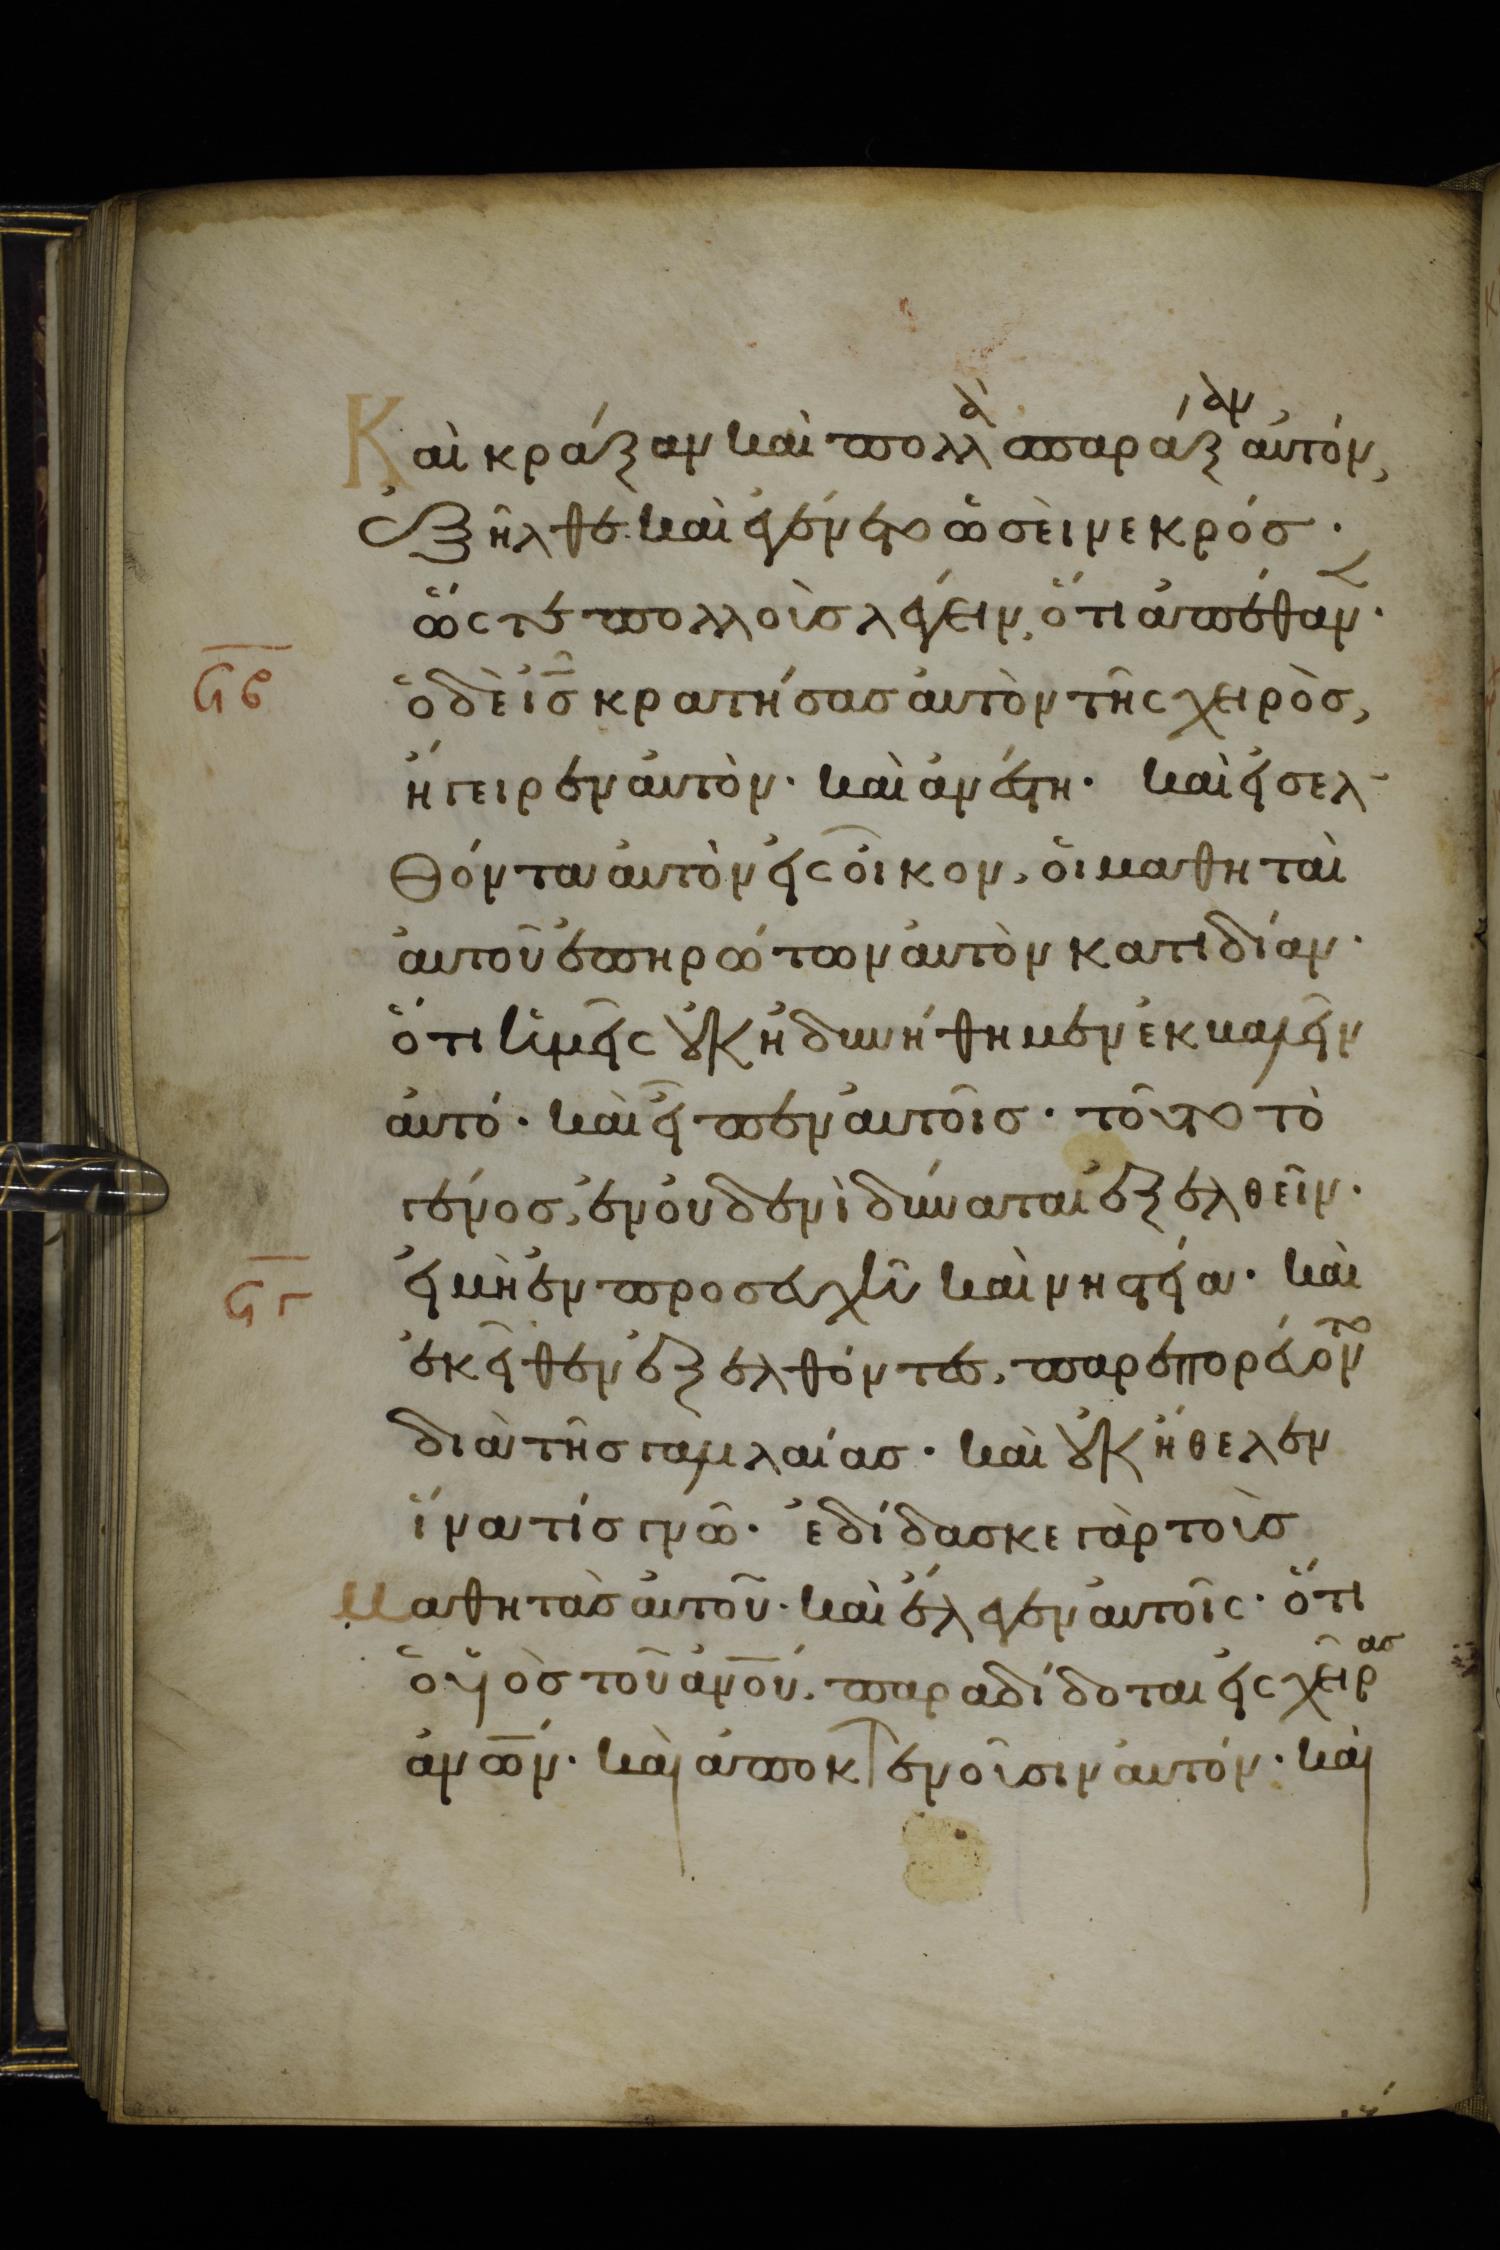 Καὶ κράξαν καὶ πολλὰ σπαράξαν αὐτόν,
ἐξῆλθε· καὶ ἐγένετο ὡσεὶ νεκρός·
ὥστε πολλοὺς λέγειν, ὅτι ἀπέθαν·
ϟβ ὁ δὲ ις κρατήσας αὐτὸν τῆς χειρὸς,
ἤγειρεν αὐτὸν· καὶ ἀνέστη· καὶ εἰσελ
θόντα αὐτὸν εἰς οἶκον, οἱ μαθηταὶ
αὐτοῦ ἐπηρώτων αὐτὸν κατιδίαν·
ὅτι ἡμεῖς οὐκ ἠδυνήθημεν ἐκβαλεῖν
αὐτό· καὶ εἶπεν αὐτοῖς· τοῦτο τὸ
γένος, ἐν οὐδενὶ δύναται ἐξελθεῖν·
ϟγ εἰ μὴ ἐν προσευχῇ καὶ νηστεία· καὶ
ἐκεῖθεν ἐξελθόντες, παρεπορεύοντο
διὰ τῆς γαλιλαίας· καὶ οὐκ ἤθελεν
ἵνα τίς γνῶ· ἐδίδασκε γὰρ τοὺς
μαθητὰς αὐτοῦ· καὶ ἔλεγεν αὐτοῖς· ὅτι
ὁ υἱὸς τοῦ ανου, παραδίδοται εἰς χεῖρας
ανων· καὶ ἀποκτενοῦσιν αὐτόν· καὶ